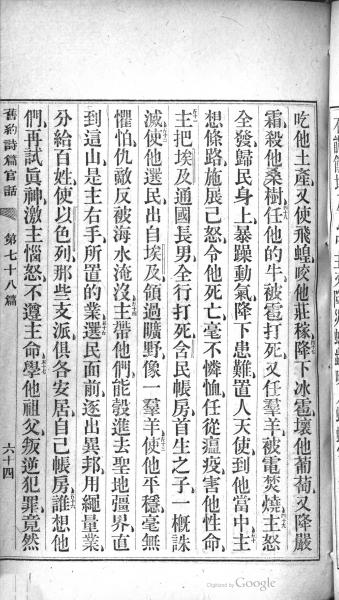 吃他土產又使飛蝗咬他莊稼降下冰雹壞他葡萄又降嚴
霜殺他桑樹任他的牛被雹打死又任羣羊被電焚燒主怒
全發歸民身上暴躁動氣降下患難置人天使到他當中主
想條路施展己怒令他死亡毫不憐恤任從瘟疫害他性命
主把埃及通國長男全行打死含民帳房首生之子一概誅
滅使他選民出自埃及領過曠野像一羣羊使他平穩毫無
懼怕仇敵反被海水淹沒主帶他們能彀進去聖地彊界直
到這山是主右手所置的業選民面前逐出異邦用繩量業
分給百姓使以色列那些支派俱各安居自己帳房誰想他
們再試眞神激主惱怒不遵主命學他祖父叛逆犯罪竟然
舊約詩篇官話 第七十八篇 六十四
Digitized by Google